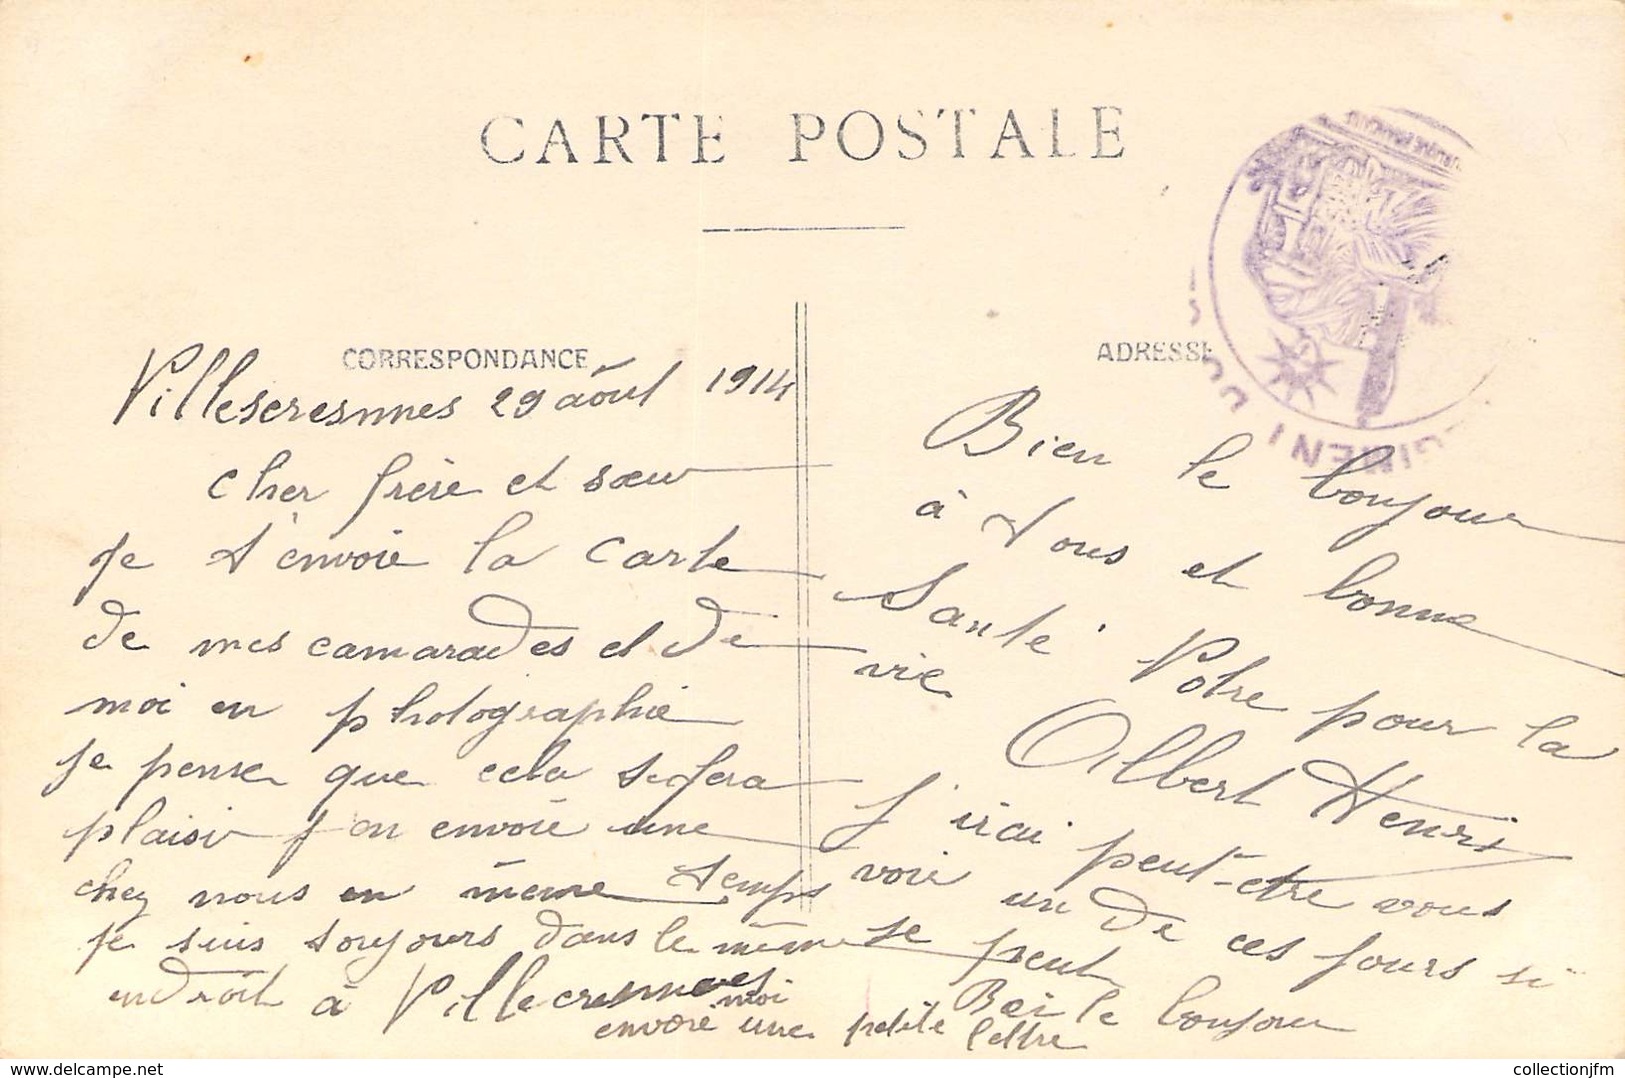 CARTE POSTALE
CORRESPONDANCE
ADRESSE
Villescresnnes 29 août 1914
cher frère et sœur
je t'envoie la carte
de mes camarades et de
moi en photographie
je pense que cela te fera
plaisir j'en envoie une
chez nous en même temps
je suis toujours dans le même
endroit à Villecresnnes
envoie moi une petite lettre
Bien le bonjour
à tous et bonne
Santé Votre pour la
vie
Albert Henri
J'irai peut-être vous
voir un de ces jours si
se peut
le bonjour
DU
collectionjfm